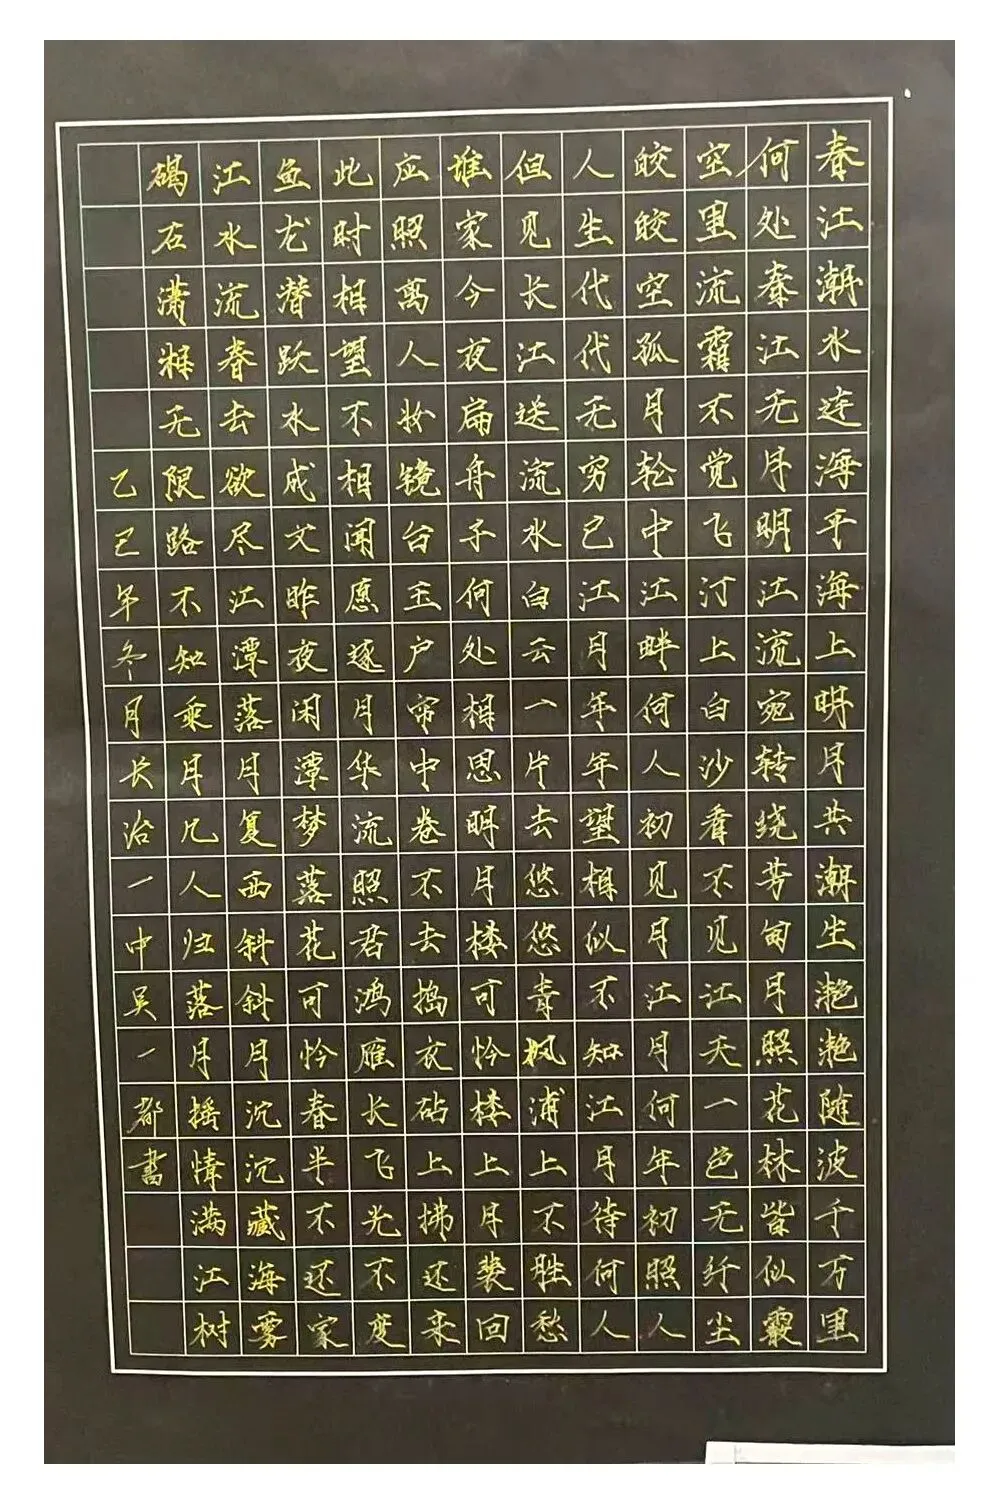 春江潮水连海平海上明月共潮生滟滟随波千万里
何处春江无月明江流宛转绕芳甸月照花林皆似霰
空里流霜不觉飞汀上白沙看不见江天一色无纤尘
皎皎空孤月轮中江畔何人初见月江月何年初照人
人生代代无穷已江月年年望相似不知江月待何人
但见长江送流水白云一片去悠悠青枫浦上不胜愁
谁家今夜扁舟子何处相思明月楼可怜楼上月裴回
应照离人妆镜台玉户帘中卷不去捣衣砧上拂还来
此时相望不相闻愿逐月华流照君鸿雁长飞光不度
鱼龙潜跃水成文昨夜闲潭梦落花可怜春半不还家
江水流春去欲尽江潭落月复西斜斜月沉沉藏海雾
碣石潇湘无限路不知乘月几人归落月摇情满江树
乙巳年冬月长治一中吴一都书